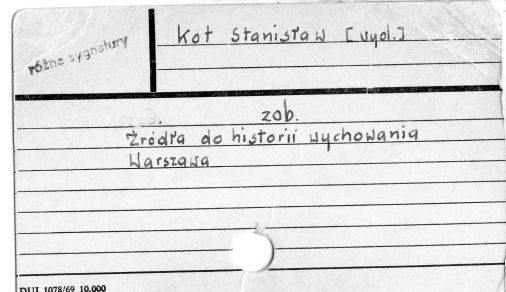 różne sygnatury
Kot Stanisław [wyd.]
zob.
Źródła do historii wychowania
Warszawa
DUJ 1078/69 10.000